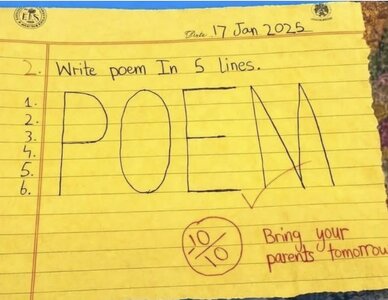 EIS
Date 17 Jan 2025
2. Write poem In 5 lines.
1.
2.
3.
4.
5.
6.
POEM
-10/10
Bring your
parents tomorrow